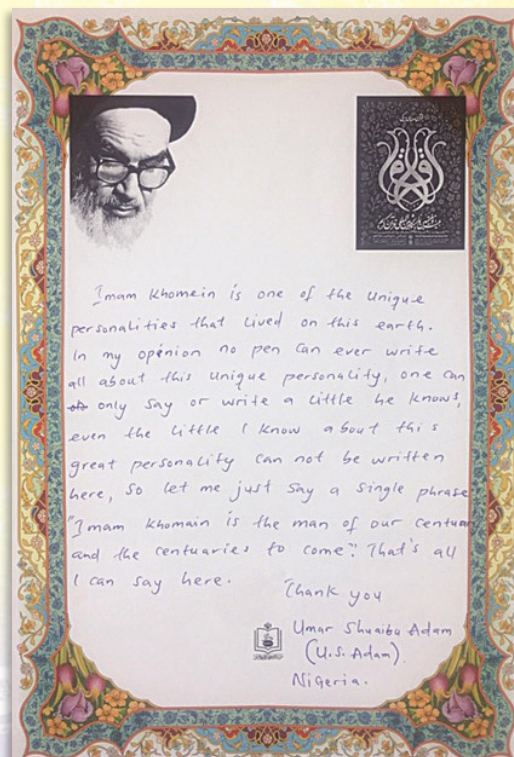 Imam Khomein is one of the Unique
personalities that Lived on this earth.
In my opinion no pen can ever write
all about this unique personality, one can
only say or write a little he knows,
even the little I know about this
great personality can not be written
here, so let me just say a single phrase
"Imam Khomain is the man of our centuar
and the centuaries to come". That's all
I can say here.
Thank you
Umar Shuaibu Adam
(U.S. Adam).
Nigeria.